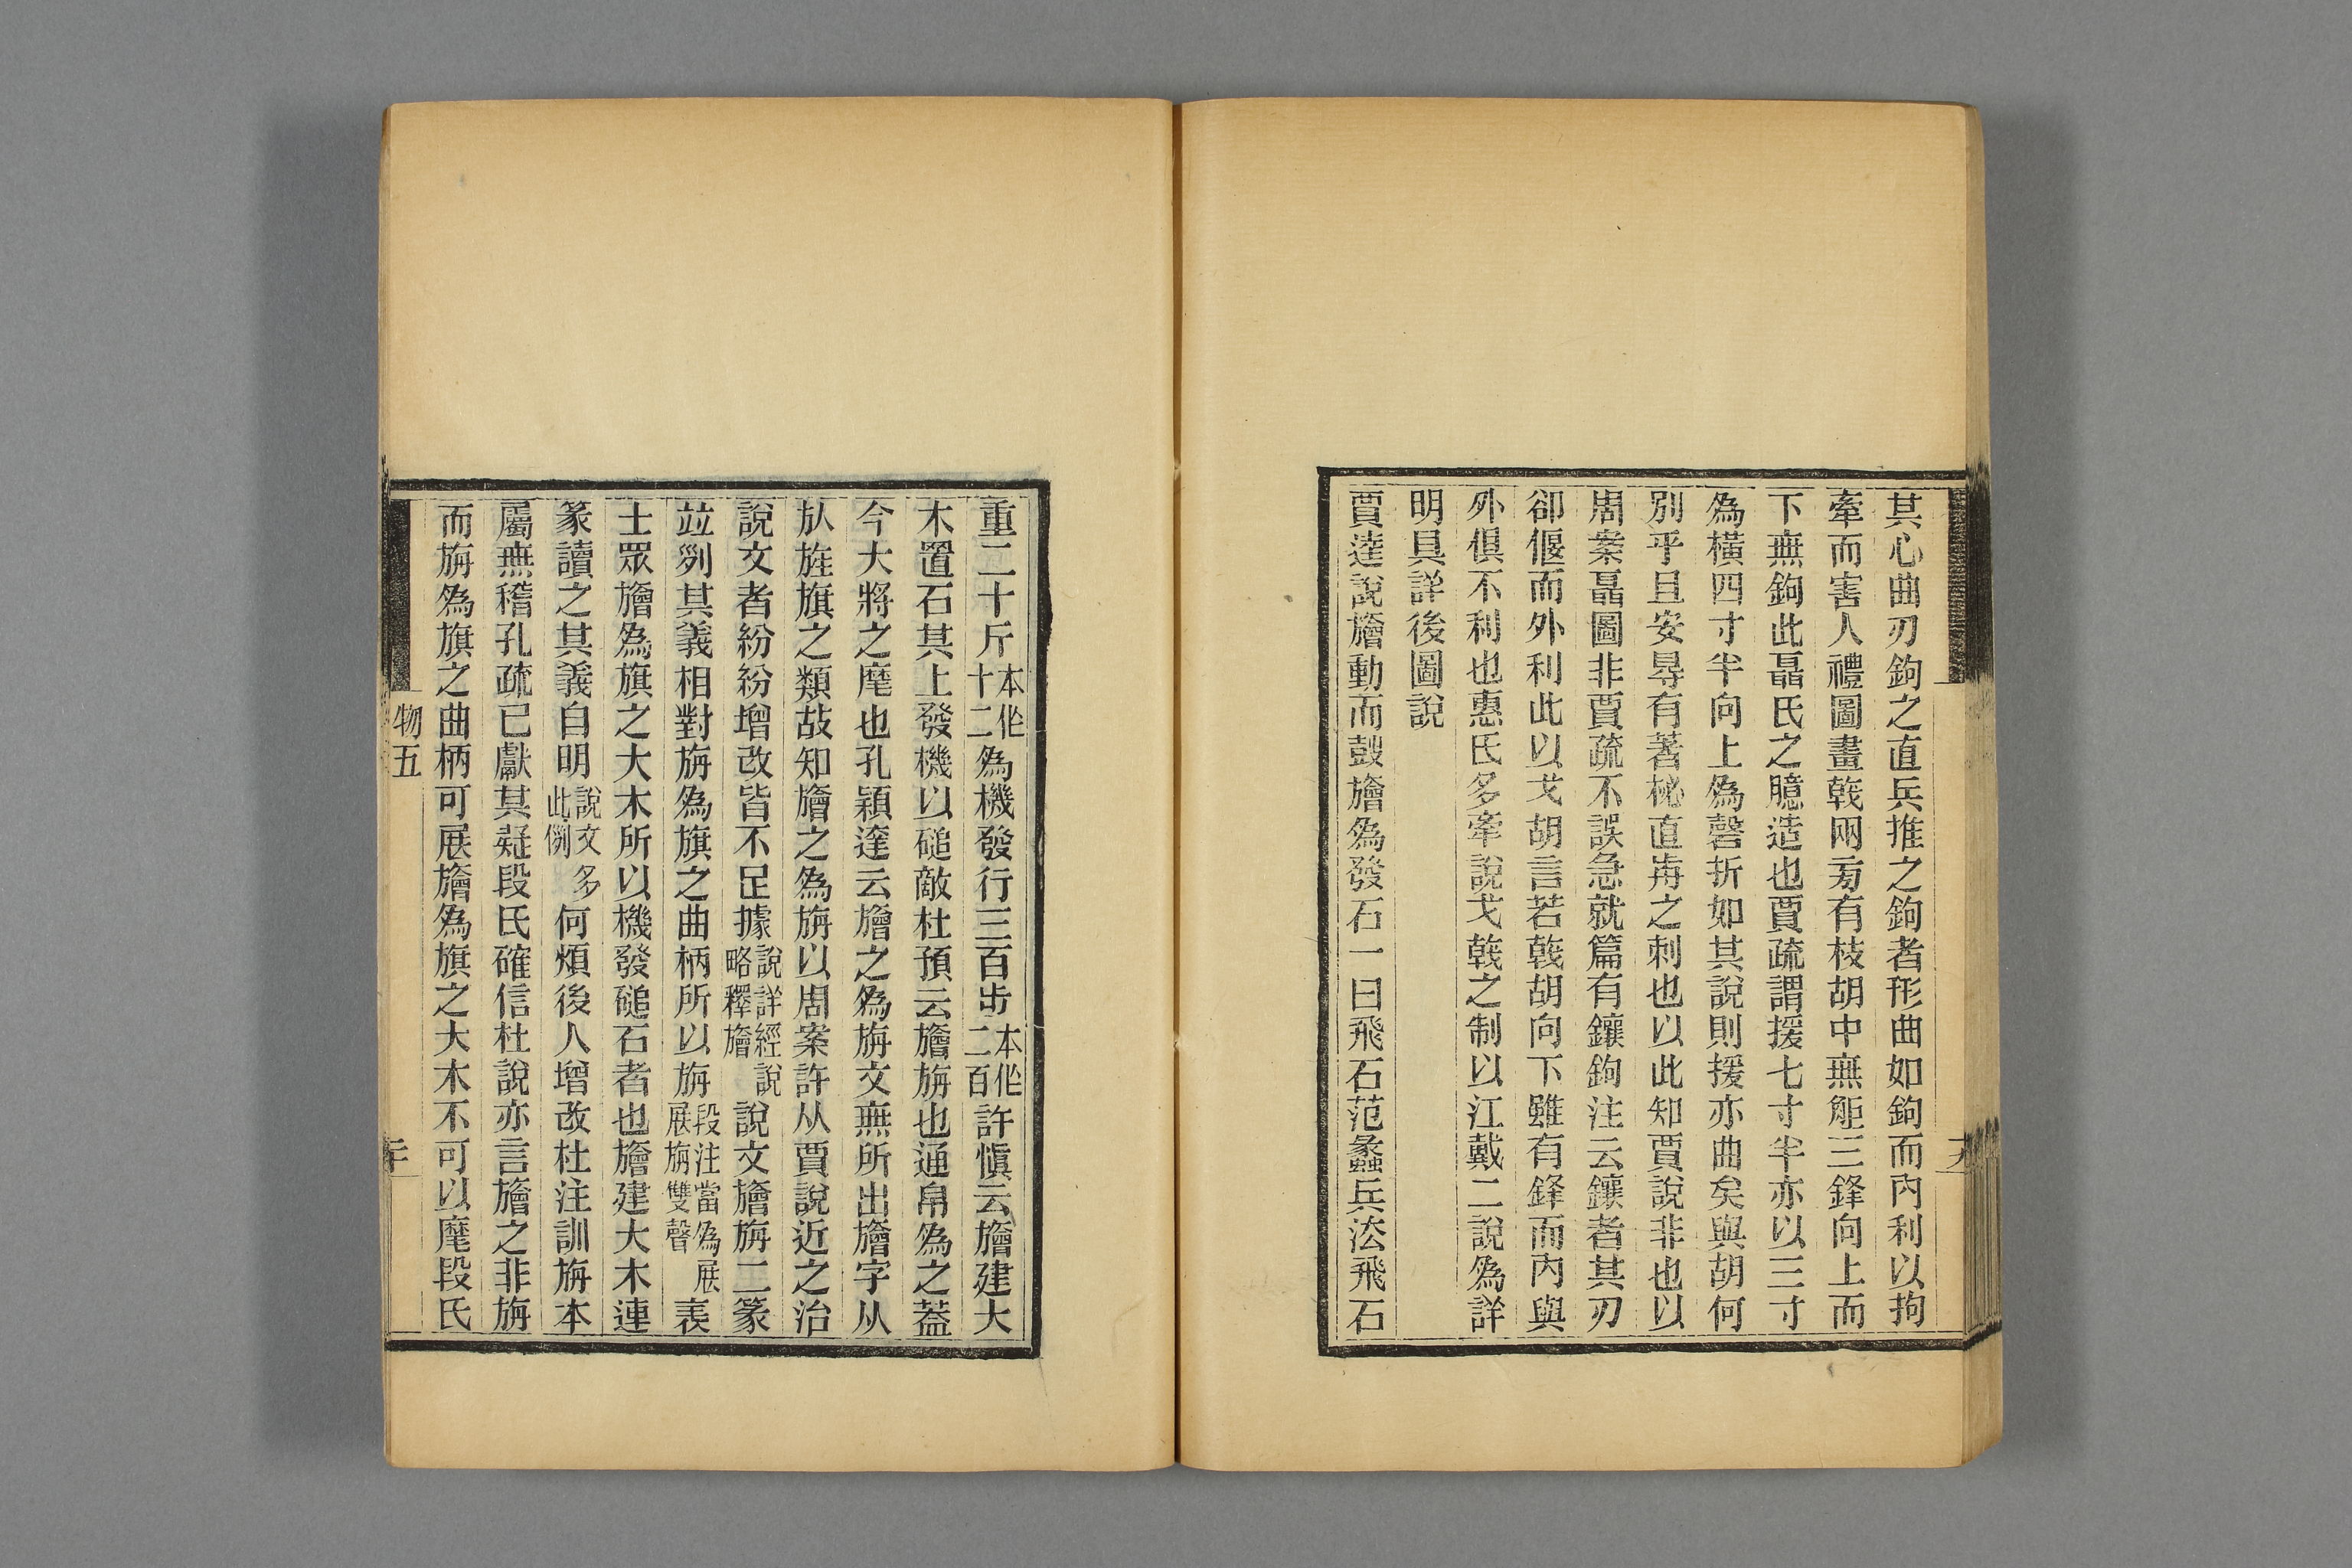 其心曲刃鉤之直兵推之鉤者形曲如鉤而內利以拘
牽而害人禮圖畫戟兩旁有枝胡中無𧣒三鋒向上而
下無鉤此聶氏之臆造也賈疏謂援七寸半亦以三寸
為橫四寸半向上為磬折如其說則援亦曲矣與胡何
別乎且安㝵有著柲直歬之刺也以此知賈說非也以
周案聶圖非賈疏不誤急就篇有鑲鉤注云鑲者其刃
卻偃而外利此以戈胡言若戟胡向下雖有鋒而內與
外俱不利也惠氏多牽說戈戟之制以江戴二說為詳
明具詳後圖說
賈逵說旝動而鼓旝為發石一曰飛石范蠡兵法飛石
重二十斤本作十二為機發行三百步本作二百許慎云旝建大
木置石其上發機以磓敵杜預云旝旃也通帛為之蓋
今大將之麾也孔穎達云旝之為旃文無所出旝字从
㫃旌旗之類故知旝之為旃以周案許从賈說近之治
說文者紛紛增改皆不足據說詳經說略釋旝說文旝旃二篆
竝列其義相對旃為旗之曲柄所以旃段注當為展展旃雙聲表
士眾旝為旗之大木所以機發磓石者也旝建大木連
篆讀之其義自明說文多此例何煩後人增改杜注訓旃本
屬無稽孔疏已獻其疑段氏確信杜說亦言旝之非旃
而旃為旗之曲柄可展旝為旗之大木不可以麾段氏
物五